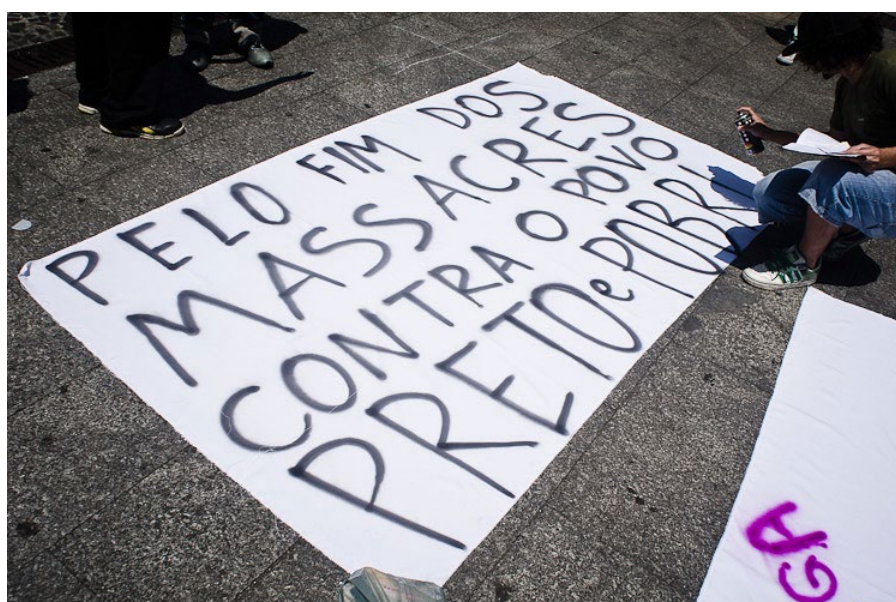 PELO FIM DOS
MASSACRES
CONTRA O POVO
PRETO e POBR
GA